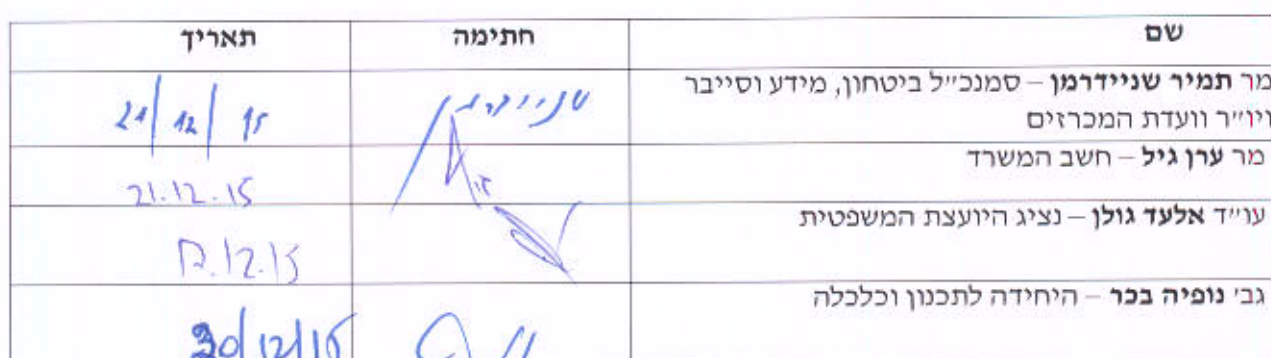 שם חתימה תאריך
מר תמיר שניידרמן – סמנכ״ל ביטחון, מידע וסייבר
ויו״ר וועדת המכרזים
שניידרמן 21/12/15
מר ערן גיל – חשב המשרד
21.12.15
עו״ד אלעד גולן – נציג היועצת המשפטית
17.12.15
גב׳ נופיה בכר – היחידה לתכנון וכלכלה
20/12/15